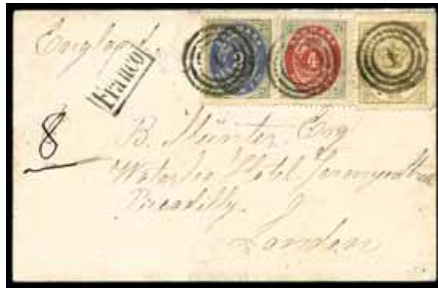 England.
2
4
Franco
8
B. Hunter Esq
Waterloo Hotel Jermyn Street
Piccadilly
London